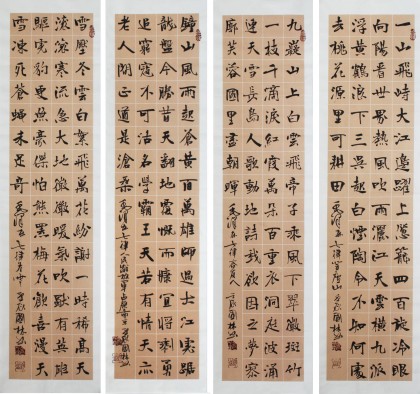 一山飛峙大江邊躍上蔥蘢四百旋冷眼
向陽看世界熱風吹雨灑江天雲橫九派
浮黃鶴浪下三吳起白煙陶令不知何處
去桃花源里可耕田
七律登廬山
九嶷山上白雲飛帝子乘風下翠微斑竹
一枝千滴淚紅霞萬朵百重衣洞庭波涌
連天雪長島人歌動地詩我欲因之夢寥
廓芙蓉國里盡朝暉
鐘山風雨起蒼黃百萬雄師過大江虎踞
龍盤今勝昔天翻地覆慨而慷宜將剩勇
追窮寇不可沽名學霸王天若有情天亦
老人間正道是滄桑
雪壓冬雲白絮飛萬花紛謝一時稀高天
滾滾寒流急大地微微暖氣吹獨有英雄
驅虎豹更無豪傑怕熊羆梅花歡喜漫天
雪凍死蒼蠅未足奇